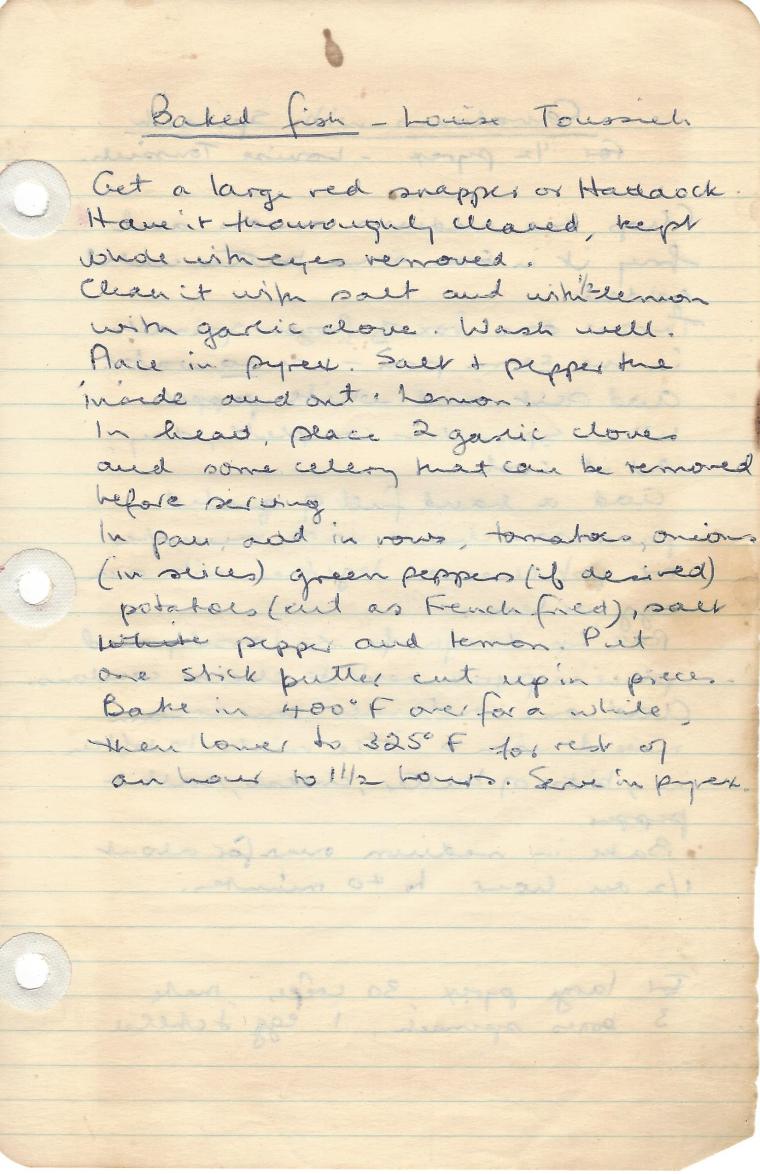 Baked fish - Louise Toussieh
Get a large red snapper or Haddock.
Have it thouroughly cleaned, kept
whole with eyes removed.
Clean it with salt and with 1/2 lemon
with garlic clove. Wash well.
Place in pyrex. Salt & pepper the
inside and out. Lemon.
In head, place 2 garlic cloves
and some celery that can be removed
before serving
In pan, add in rows, tomatoes, onions
(in slices) green peppers (if desired)
potatoes (cut as French fried), salt
white pepper and lemon. Put
one stick butter cut up in pieces.
Bake in 400° F oven for a while,
then lower to 325° F for rest of
an hour to 1 1/2 hours. Serve in pyrex.